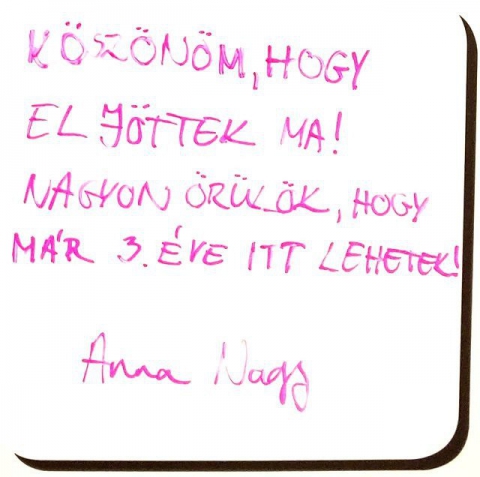 KÖSZÖNÖM, HOGY
ELJÖTTEK MA!
NAGYON ÖRÜLÖK, HOGY
MÁR 3. ÉVE ITT LEHETEK!
Anna Nagy